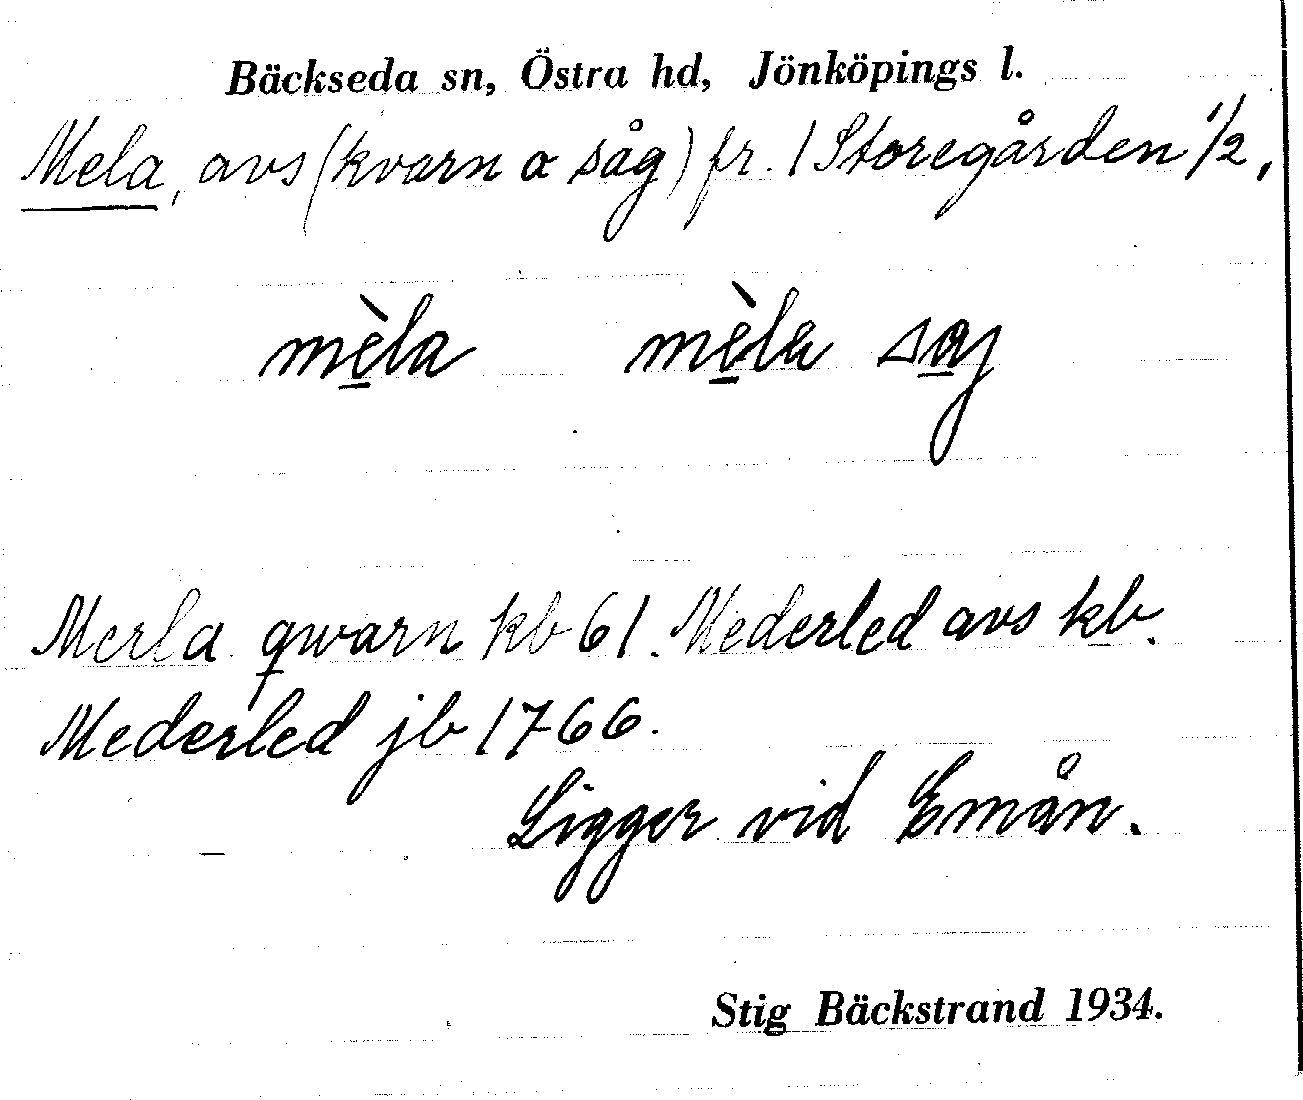 Bäckseda sn, Östra hd, Jönköpings l.
Mela, avs (kvarn o såg) fr. 1 Storegården 1/2,
mèla mèla sag
Merla qwarn kb 61. Mederled avs kb.
Mederled jb 1766.
Ligger vid Emån.
Stig Bäckstrand 1934.